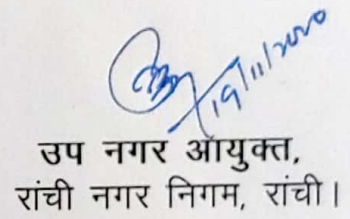 19/11/2020
उप नगर आयुक्त,
रांची नगर निगम, रांची।